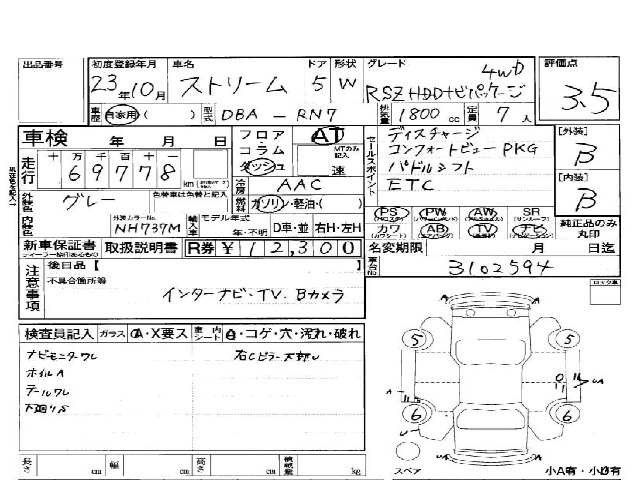 出品番号 初度登録年月 車名 ドア 形状 グレード 評価点
23年10月 ストリーム 5 W 4WD
RSZ HDDナビパッケージ 3.5
車歴 自家用・( ) 型式 DBA - RN7 排気量 1800 cc 定員 7人
車検 年 月 日 フロア AT セールスポイント ディスチャージ 【外装】
走行 十万千百十 コラム MTのみ記入 コンフォートビューPKG B
69778 km ダッシュ 速 パドルシフト 【内装】
冷房 AAC ETC B
外装色 グレー 色替車は色替と記入 燃料 ガソリン・軽油・( )
PS PW AW SR 純正品のみ丸印
内装色 外装カラーNo. NH737M 輸入車 モデル年式 年・不明 D車・並 右H・左H カワ AB TV ナビ
新車保証書 取扱説明書 R券 ¥12,300 名変期限 月 日迄
注意事項 後日品【 車台No. 3102594
不具合箇所等 ロック車
インターナビ・TV.Bカメラ
検査員記入 ガラス A・X要ス 車内シート ・コゲ・穴・汚れ・破れ
ナビモニターワレ 右Cピラー
ホイルA
テールワレ
下廻りS
5 5
A
6 6
長さ cm 幅 cm 高さ cm 積載量 kg スペア 小A有・小B有